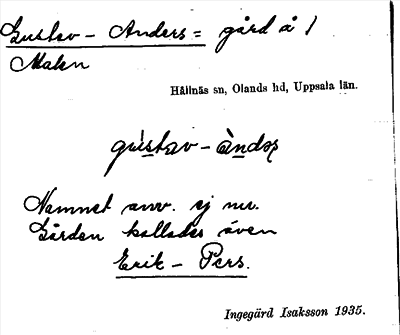 Gustav - Anders = gård å 1
Malen
Hållnäs sn, Olands hd, Uppsala län.
gústav - àndəʂ
Namnet anv. ej nu.
Gården kallades även
Erik - Pers.
Ingegärd Isaksson 1935.